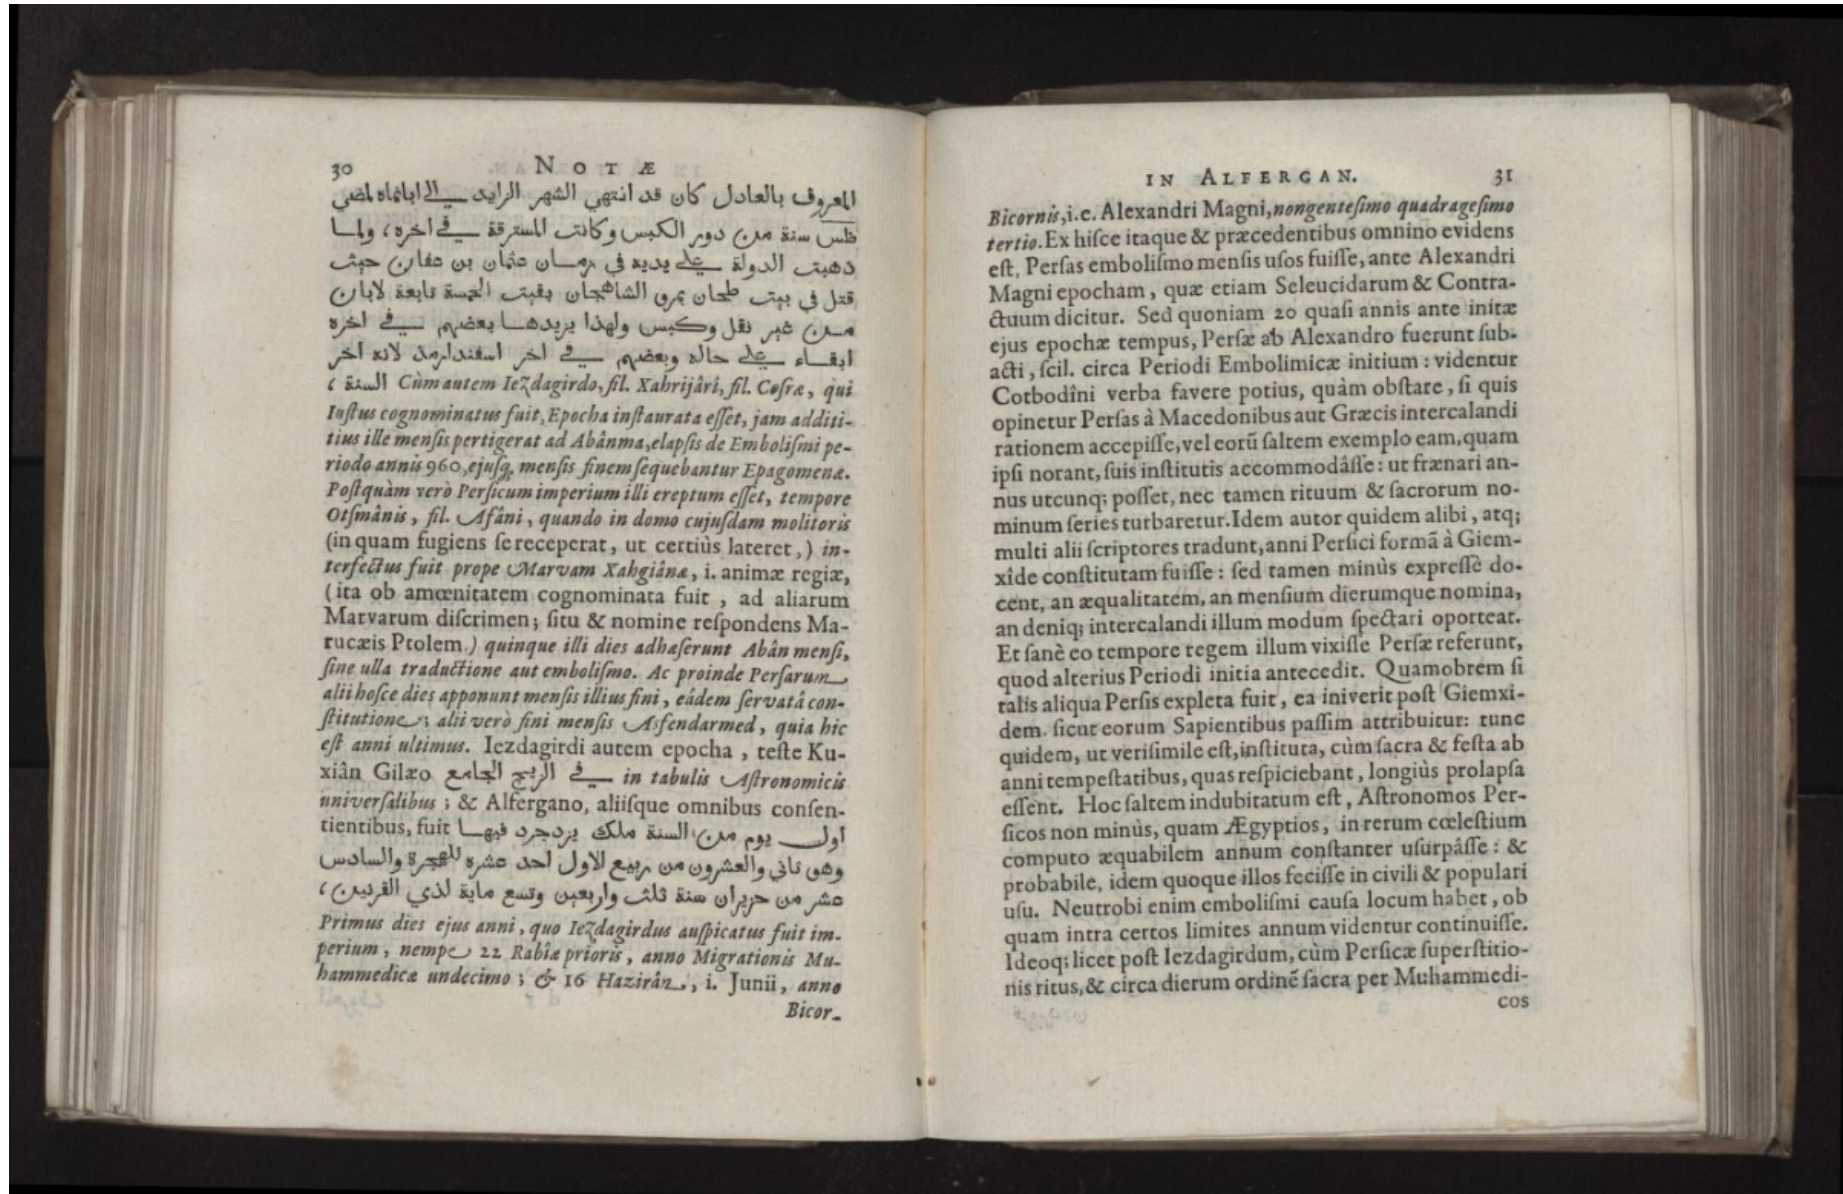 30 NOTÆ
المعروف بالعادل كان قد انتهي الشهر الزايد في الي ابانماه لمضي
ظس سنة من دور الكبس وكانت المسترقة في اخره، ولما
ذهبت الدولة علي يديه في زمان عثمان بن عفان حيث
قتل في بيت طحان بمرو الشاهجان بقيت الخمسة تابعة لابان
من غير نقل وكبس ولهذا يزيدها بعضهم في اخره
ابقاء علي حاله وبعضهم في اخر اسفندارمذ لانه اخر
السنة، Cùm autem Iezdagirdo, fil. Xahrijâri, fil. Cosræ, qui
Iustus cognominatus fuit, Epocha instaurata esset, jam additi-
tius ille mensis pertigerat ad Abânma, elapsis de Embolismi pe-
riodo annis 960, ejusq; mensis finem sequebantur Epagomenæ.
Postquàm verò Persicum imperium illi ereptum esset, tempore
Otsmânis, fil. Afâni, quando in domo cujusdam molitoris
(in quam fugiens se receperat, ut certiùs lateret,) in-
terfectus fuit prope Marvam Xahgiânæ, i. animæ regiæ,
(ita ob amœnitatem cognominata fuit, ad aliarum
Marvarum discrimen; situ & nomine respondens Ma-
rucæis Ptolem.) quinque illi dies adhæserunt Abân mensi,
sine ulla traductione aut embolismo. Ac proinde Persarum
alii hosce dies apponunt mensis illius fini, eâdem servatâ con-
stitutione; alii verò fini mensis Asfendarmed, quia hic
est anni ultimus. Iezdagirdi autem epocha, teste Ku-
xiân Gilæo في الزيج الجامع in tabulis Astronomicis
universalibus; & Alfergano, aliisque omnibus consen-
tientibus, fuit اول يوم من السنة ملك يزدجرد فيها
وهو ثاني والعشرون من ربيع الاول احد عشره للهجرة والسادس
عشر من حزيران سنة ثلث واربعين وتسع ماية لذي القرنين،
Primus dies ejus anni, quo Iezdagirdus auspicatus fuit im-
perium, nempe 22 Rabîæ prioris, anno Migrationis Mu-
hammedicæ undecimo; & 16 Hazirân, i. Junii, anno
Bicor-
IN ALFERGAN. 31
Bicornis, i.e. Alexandri Magni, nongentesimo quadragesimo
tertio. Ex hisce itaque & præcedentibus omnino evidens
est, Persas embolismo mensis usos fuisse, ante Alexandri
Magni epocham, quæ etiam Seleucidarum & Contra-
ctuum dicitur. Sed quoniam 20 quasi annis ante initæ
ejus epochæ tempus, Persæ ab Alexandro fuerunt sub-
acti, scil. circa Periodi Embolimicæ initium: videntur
Cotbodîni verba favere potius, quàm obstare, si quis
opinetur Persas à Macedonibus aut Græcis intercalandi
rationem accepisse, vel eorũ saltem exemplo eam, quam
ipsi norant, suis institutis accommodâsse: ut frænari an-
nus utcunq; posset, nec tamen rituum & sacrorum no-
minum series turbaretur. Idem autor quidem alibi, atq;
multi alii scriptores tradunt, anni Persici formã à Giem-
xîde constitutam fuisse: sed tamen minùs expressè do-
cent, an æqualitatem, an mensium dierumque nomina,
an deniq; intercalandi illum modum spectari oporteat.
Et sanè eo tempore regem illum vixisse Persæ referunt,
quod alterius Periodi initia antecedit. Quamobrem si
talis aliqua Persis expleta fuit, ea iniverit post Giemxi-
dem. sicut eorum Sapientibus passim attribuitur: tunc
quidem, ut verisimile est, instituta, cùm sacra & festa ab
anni tempestatibus, quas respiciebant, longiùs prolapsa
essent. Hoc saltem indubitatum est, Astronomos Per-
sicos non minùs, quam Ægyptios, in rerum cœlestium
computo æquabilem annum constanter usurpâsse: &
probabile, idem quoque illos fecisse in civili & populari
usu. Neutrobi enim embolismi causa locum habet, ob
quam intra certos limites annum videntur continuisse.
Ideoq; licet post Iezdagirdum, cùm Persicæ superstitio-
nis ritus, & circa dierum ordinẽ sacra per Muhammedi-
cos